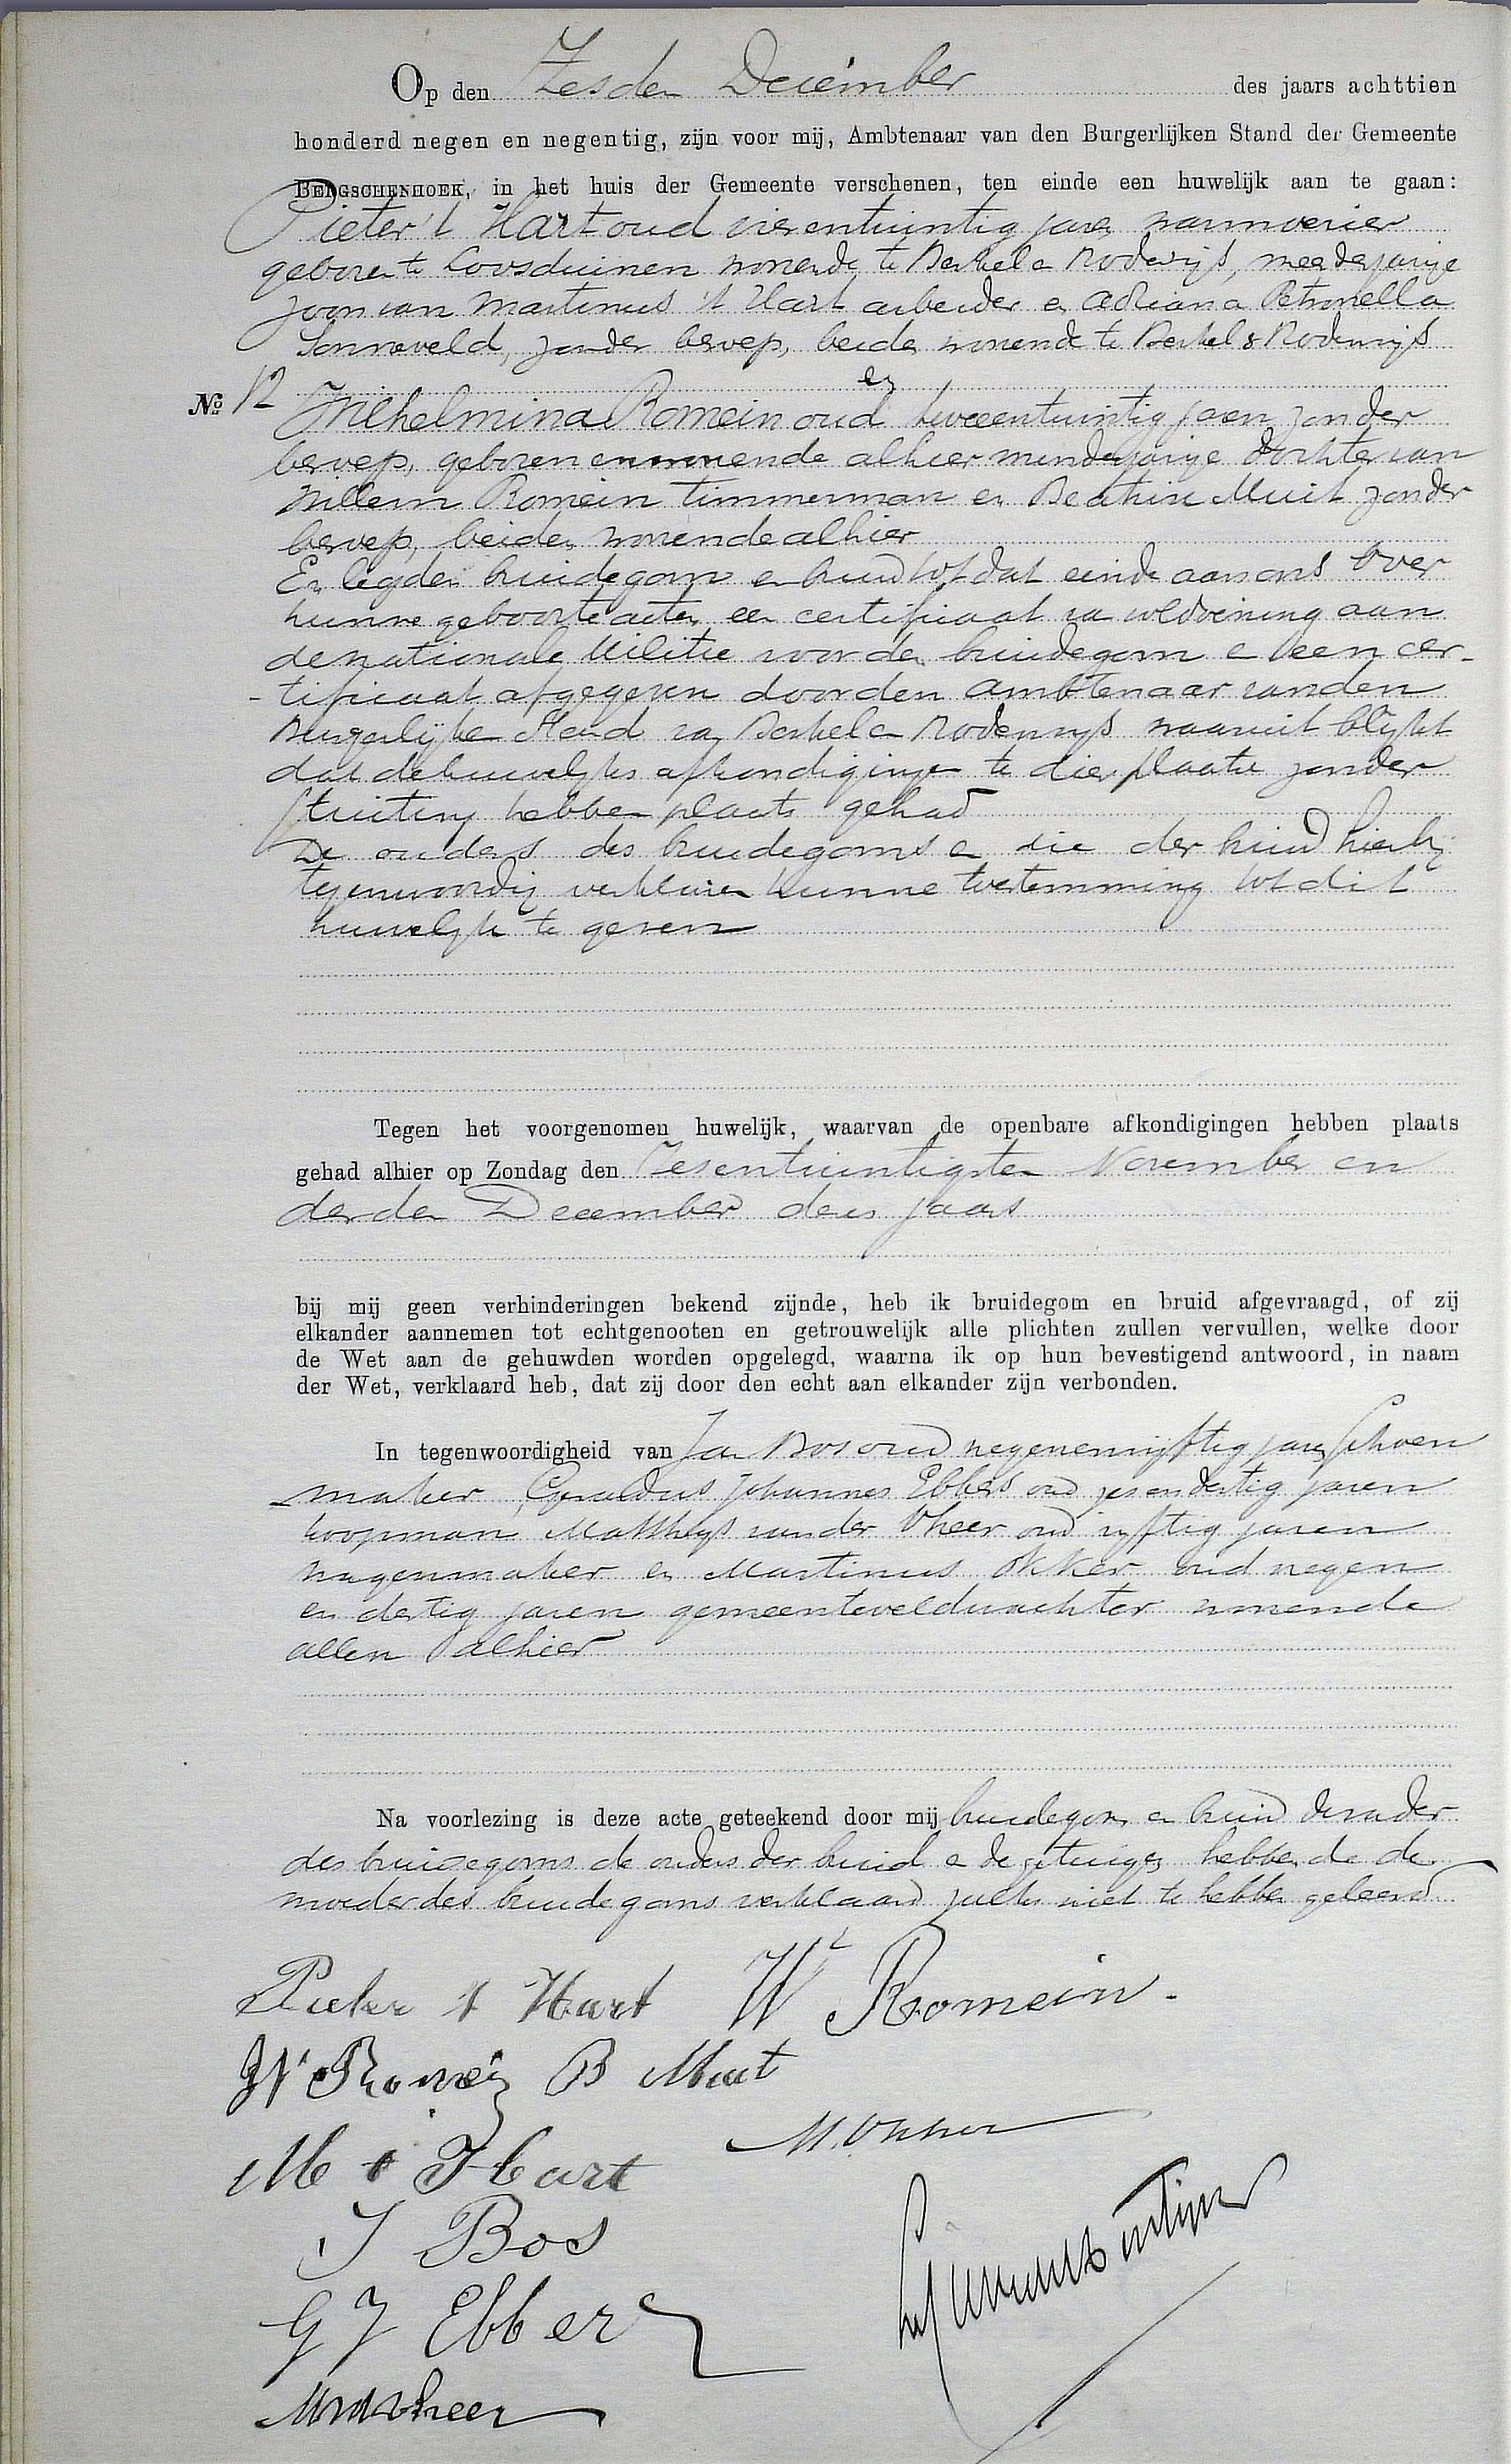 Op den Zesden December des jaars achttien
honderd negen en negentig, zijn voor mij, Ambtenaar van den Burgerlijken Stand der Gemeente
BERGSCHENHOEK, in het huis der Gemeente verschenen, ten einde een huwelijk aan te gaan:
Pieter 't Hart oud vierentwintig jaren warmoezier
geboren te Loosduinen wonende te Berkel en Rodenrijs, meerderjarige
zoon van Martinus 't Hart arbeider en Adriana Petronella
Sonneveld, zonder beroep, beiden wonende te Berkel & Rodenrijs
en
No 12
Wilhelmina Romein oud tweeentwintig jaren zonder
beroep, geboren en wonende alhier minderjarige dochter van
Willem Romein timmerman en Beatrix Muit zonder
beroep, beiden wonende alhier
En legden bruidegom en bruid tot dat einde aan ons over
hunne geboorteacten, een certificaat van voldoening aan
de nationale Militie voor den bruidegom en een cer-
-tificaat afgegeven door den ambtenaar van den
Burgerlijken Stand van Berkel en Rodenrijs waaruit blijkt
dat de huwelijks afkondigingen te dier plaatse zonder
stuiting hebben plaats gehad
De ouders des bruidegoms en die der bruid hierbij
tegenwoordig verklaren hunne toestemming tot dit
huwelijk te geven
Tegen het voorgenomen huwelijk, waarvan de openbare afkondigingen hebben plaats
gehad alhier op Zondag den Zesentwintigsten November en
derden December dezes jaars
bij mij geen verhinderingen bekend zijnde, heb ik bruidegom en bruid afgevraagd, of zij
elkander aannemen tot echtgenooten en getrouwelijk alle plichten zullen vervullen, welke door
de Wet aan de gehuwden worden opgelegd, waarna ik op hun bevestigend antwoord, in naam
der Wet, verklaard heb, dat zij door den echt aan elkander zijn verbonden.
In tegenwoordigheid van Jan Bos oud negenenvijftig jaren, schoen
maker, Gerardus Johannes Ebbers oud zesendertig jaren
koopman Matthijs van der Vheer oud vijftig jaren
wagenmaker en Martinus Okker oud negen
en dertig jaren gemeenteveldwachter wonende
allen alhier
Na voorlezing is deze acte geteekend door mij bruidegom en bruid den vader
des bruidegoms de ouders der bruid en de getuigen hebbende de
moeder des bruidegoms verklaard zulks niet te hebben geleerd
Pieter 't Hart Wt Romein.
W Romein B Muit
M. Okker
M t Hart
J Bos
G J Ebbers
M v d Vheer